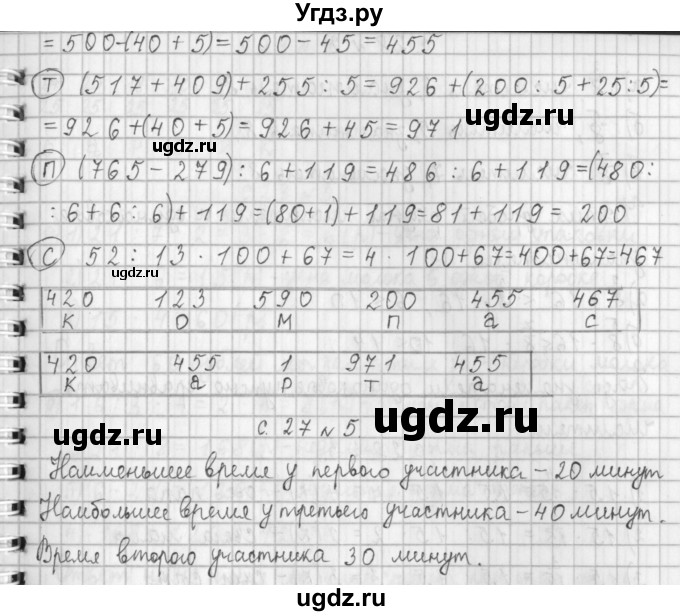 Угдз.ру
= 500-(40 + 5) = 500 - 45 = 455
Т (517 + 409) + 255 : 5 = 926 + (200 : 5 + 25 : 5) =
= 926 + (40 + 5) = 926 + 45 = 971
ugdz.ru
ugdz.ru
П (765 - 279) : 6 + 119 = 486 : 6 + 119 = (480 :
: 6 + 6 : 6) + 119 = (80+1) + 119 = 81 + 119 = 200
С 52 : 13 · 100 + 67 = 4 · 100 + 67 = 400 + 67 = 467
ugdz.ru
420 123 590 200 455 467
К О М П а С
420 455 1 971 455
К а Р Т а
ugdz.ru
ugdz.ru
с. 27 № 5
Наименьшее время у первого участника - 20 минут
Наибольшее время у третьего участника - 40 минут.
Время второго участника 30 минут.
ugdz.ru
ugdz.ru